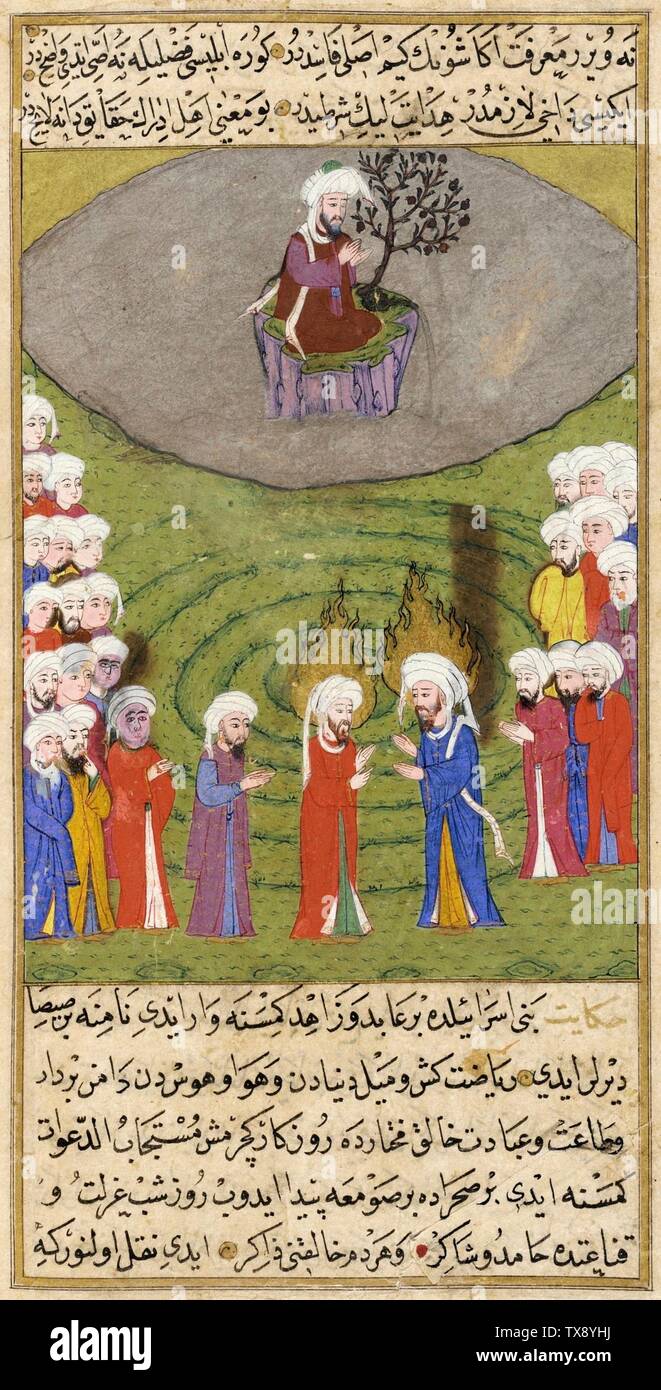 نه ویرر معرفت اکا شونك کیم اصلی فاسددر کوره ابلیسی فضلیله نه اصی ایتدی واضحدر
ایکیسی داخی لازمدر هدایت لیك شرطیدر بو معنی اهل ادراك حقایق داننه لایحدر
a
alamy
حکایت بنی اسرائیلده بر عابد و زاهد کمسنه وار ایدی نامنه برصیصا
دیرلر ایدی ریاضت کش و میل دنیادن و هوا و هوسدن دامن بردار
و طاعت و عبادت خالق مختارده روزکار کچرمش مستجاب الدعوات
کمسنه ایدی بر صحراده بر صومعه پیدا ایدوب روز شب عزلت و
قناعتده حامد و شاکر و هر دم خالقنی ذاکر ایدی نقل اولنور که
alamy
Image ID: TX8YHJ
www.alamy.com